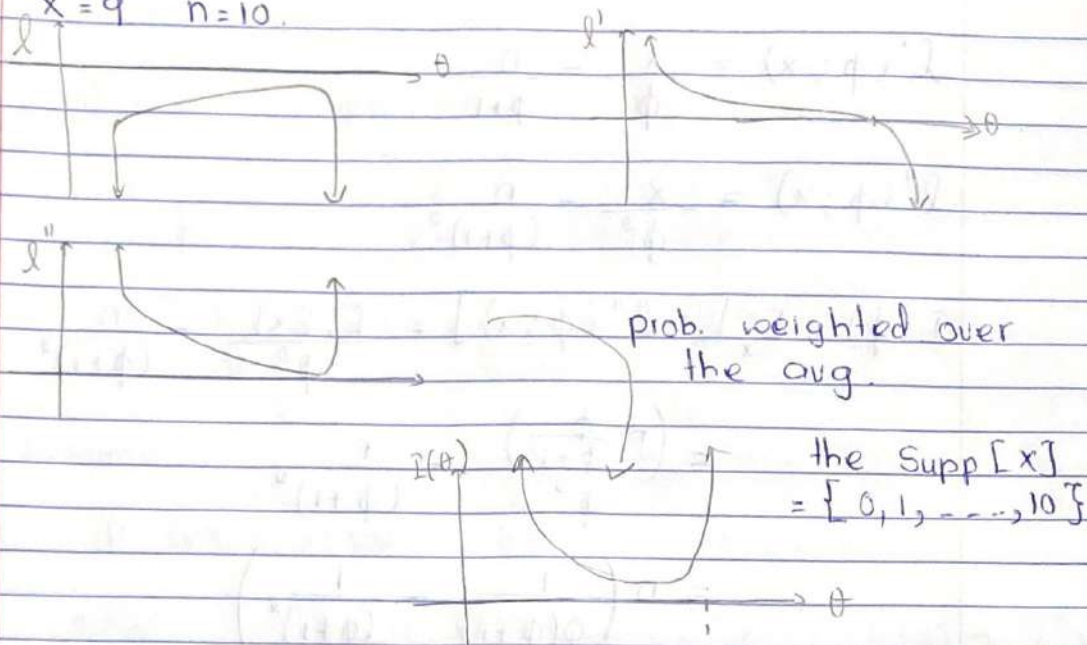 x = 9 n=10.
l θ
l' θ
l''
prob. weighted over
the avg.
I(θ) θ
the Supp [x]
= { 0, 1, ---., 10 }